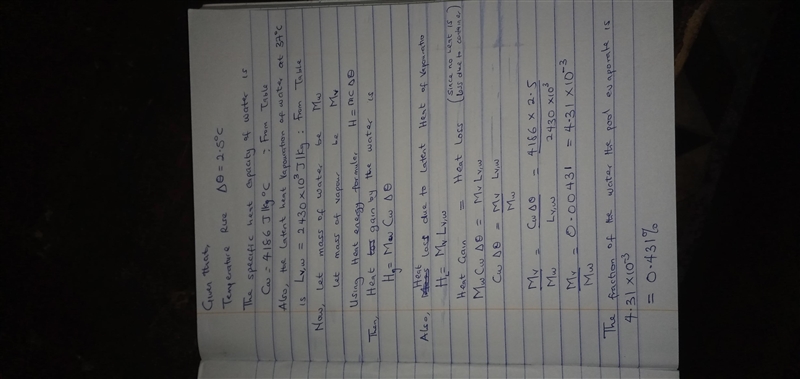 Given that,
Temperature Rise Δθ = 2.5°C
The specific heat capacity of water is
Cw = 4186 J/kg°C : From Table
Also, the latent heat vapouration of water at 37°C
is Lv,w = 2430 x 10³ J/kg : From Table
Now, let mass of water be Mw
let mass of vapour be Mv
Using Heat energy formula, H = mcΔθ
Then, Heat gain by the water is
Hg = Mw Cw Δθ
Also, Heat loss due to latent Heat of Vapouration
HL = Mv Lv,w
Heat Gain = Heat Loss (since no heat is loss due to container)
Mw Cw Δθ = Mv Lv,w
Cw Δθ = Mv Lv,w / Mw
Mv / Mw = Cw Δθ / Lv,w = 4186 x 2.5 / 2430 x 10³
Mv / Mw = 0.00431 = 4.31 x 10⁻³
The fraction of the water the pool evaporate is
4.31 x 10⁻³
= 0.431%